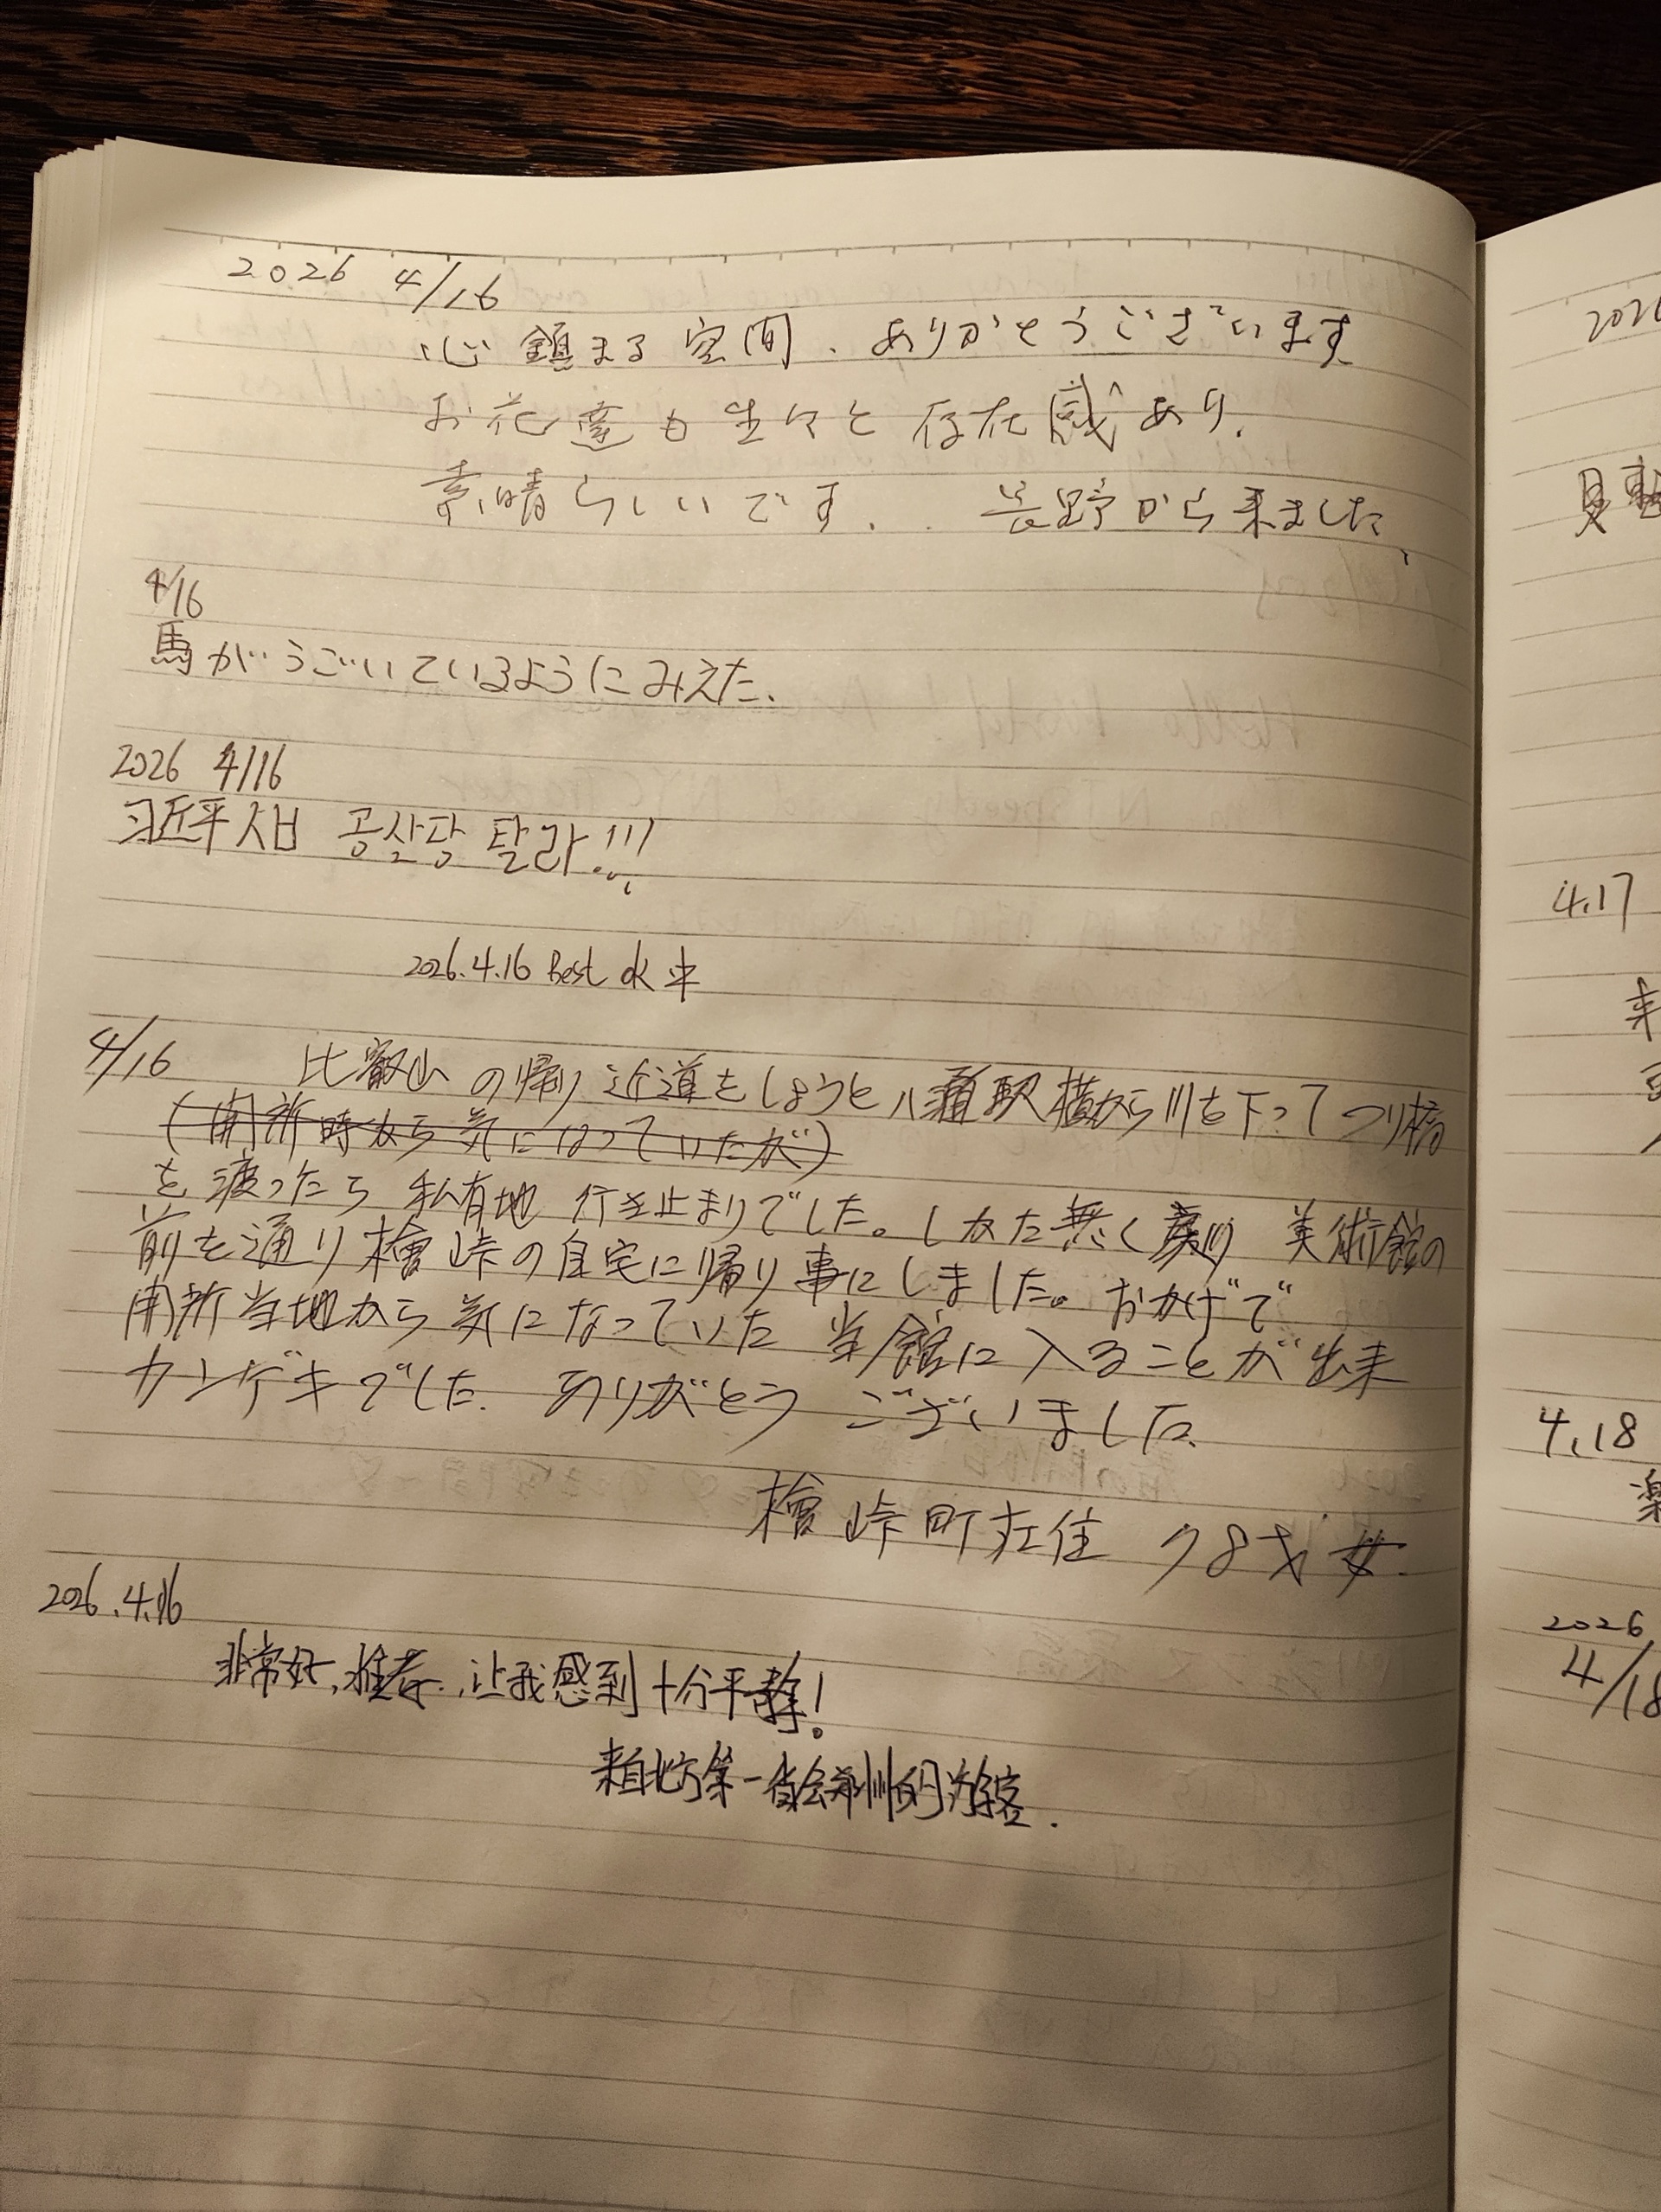 2026 4/16
心鎮まる空間、ありがとうございます
お花達も生々と存在感あり、
素晴らしいです、 長野から来ました、
4/16
馬がうごいているようにみえた。
2026 4/16
习近平 공산당 탈라!!!
2026.4.16 Best
4/16 比叡山の帰り近道をしようと八瀬駅横から川を下ってつり橋
(開所時から気になっていたが)
を渡ったら私有地 行き止まりでした。しかた無く 美術館の
前を通り檜峠の自宅に帰り事にしました。おかげで
開所当地から気になっていた当館に入ることが出来
カンゲキでした。ありがとうございました。
檜峠町在住 78才 女
2026.4.16
非常好,推荐,让我感到十分平静!
来自北方第一省会郑州的
2026
4.17
4.18
2026
4/18